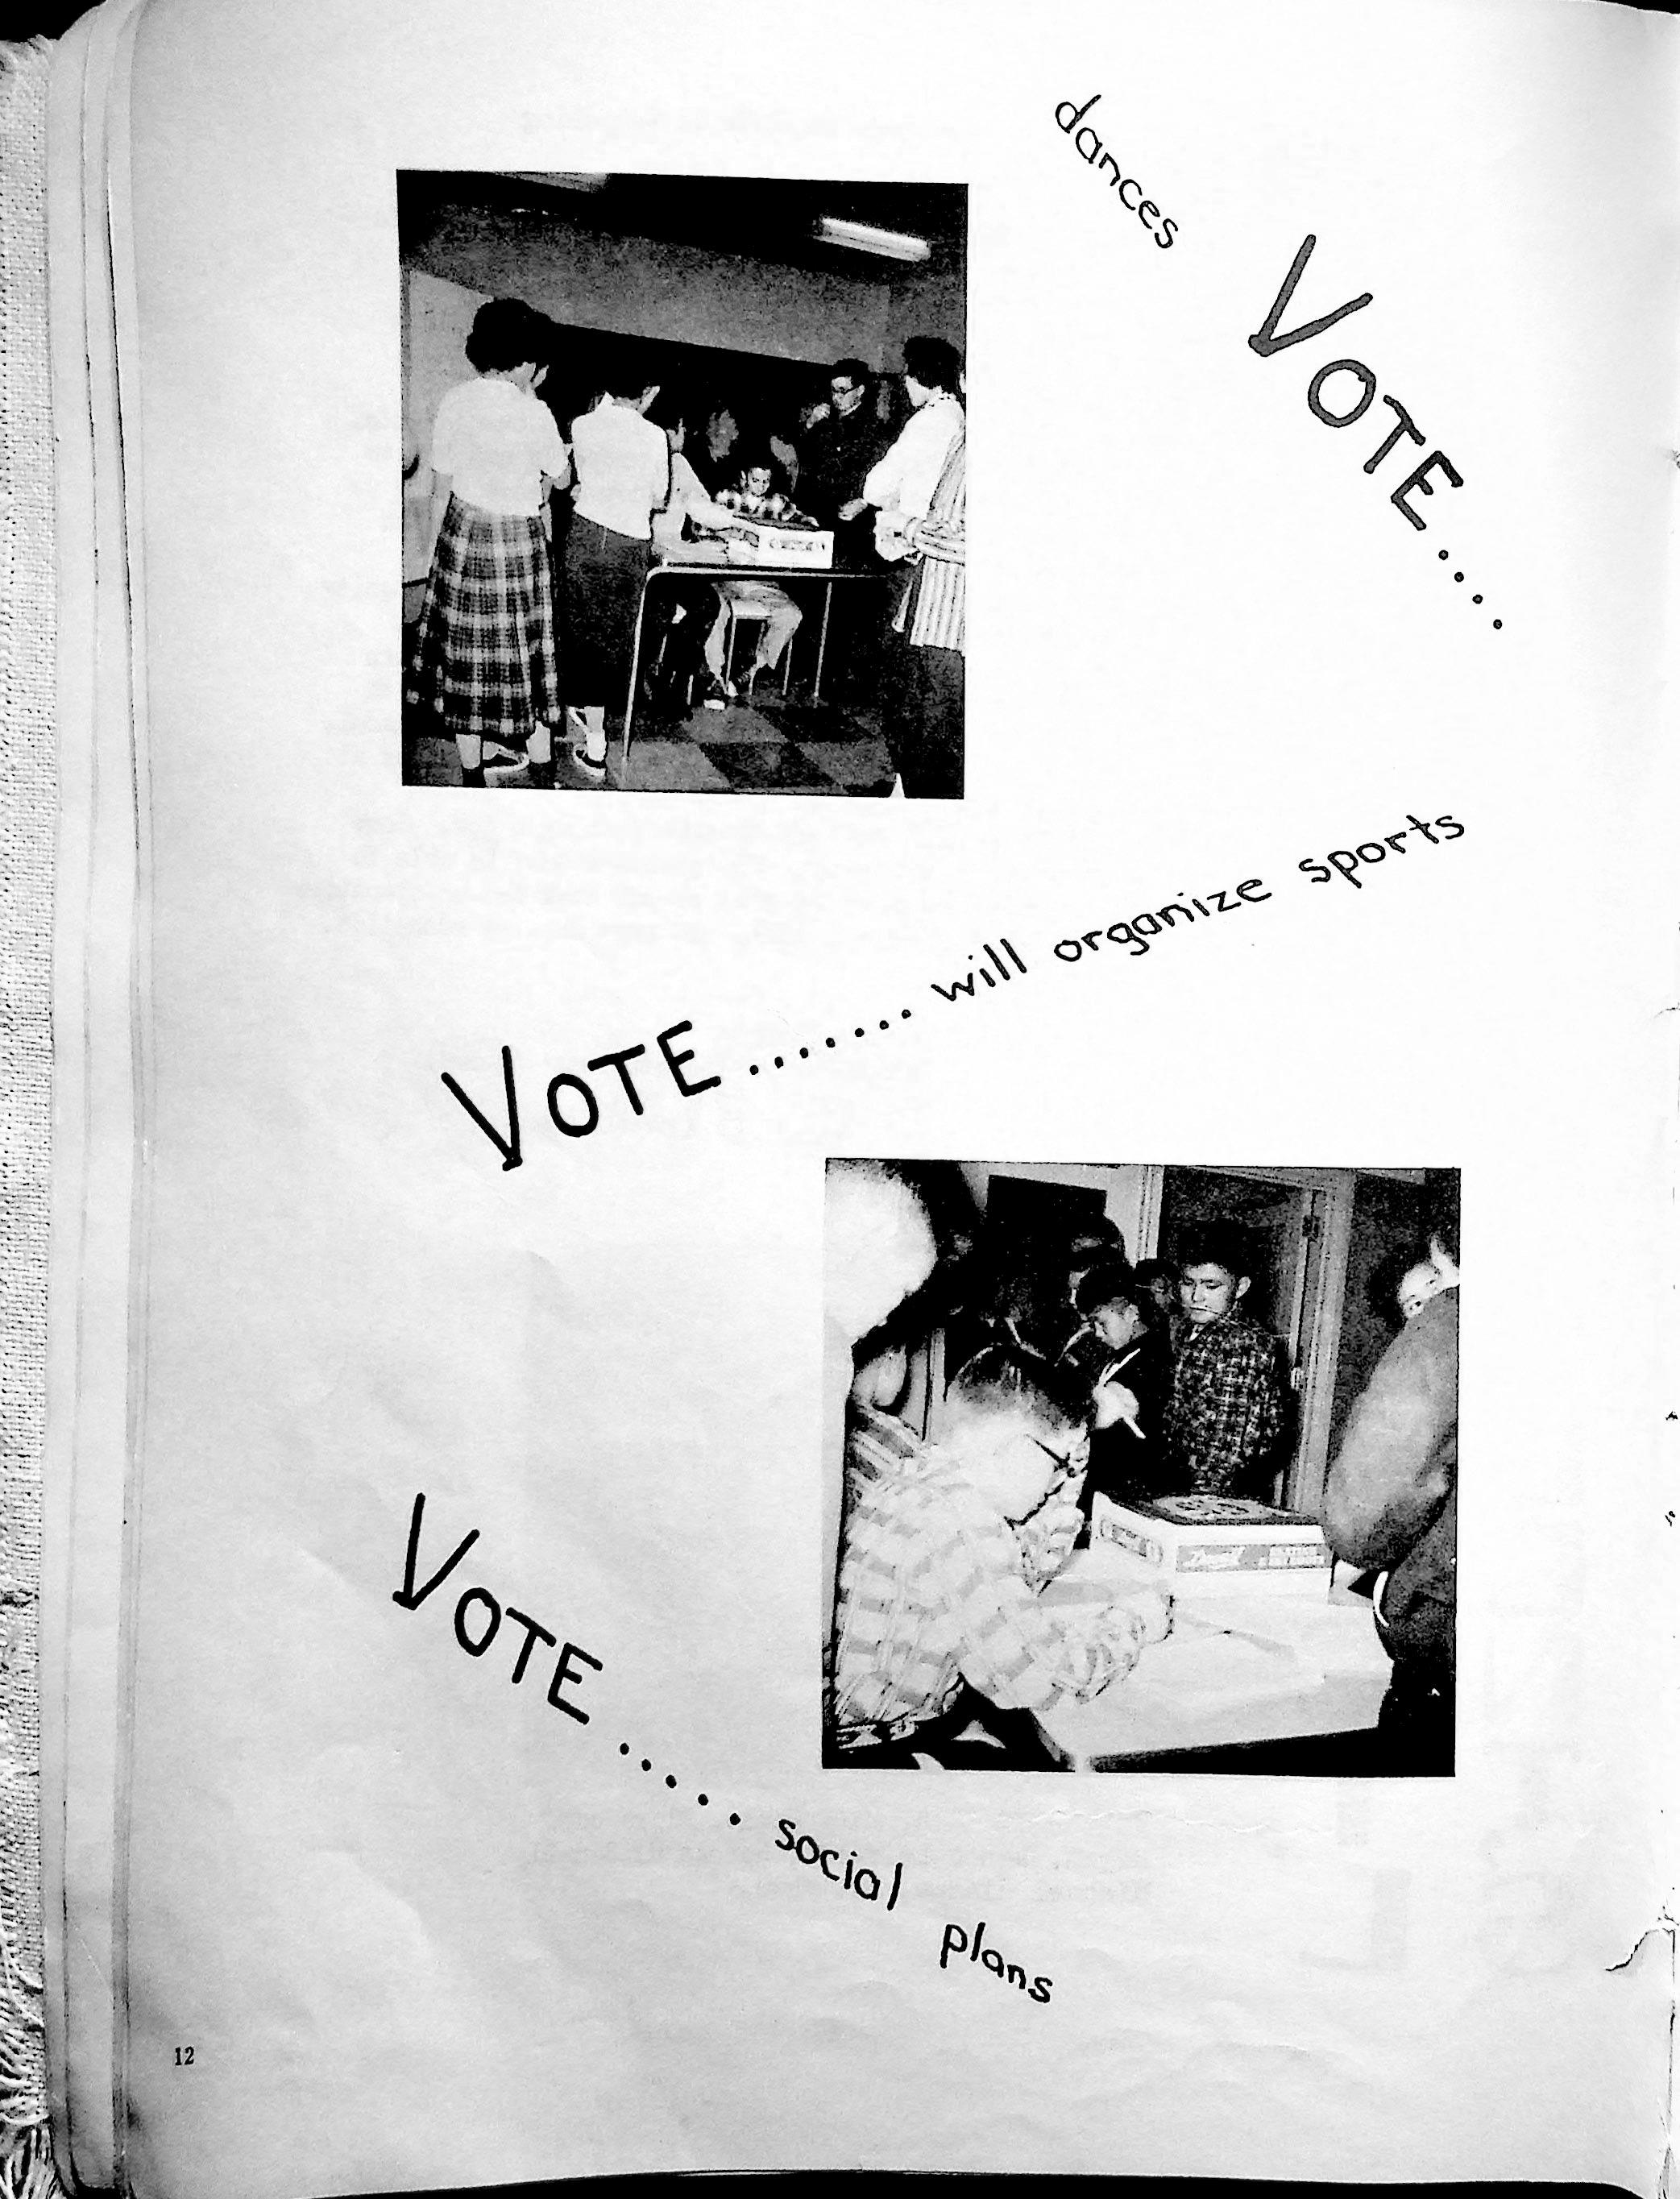 dances
VOTE....
VOTE....... will organize sports
VOTE ..... social plans
12